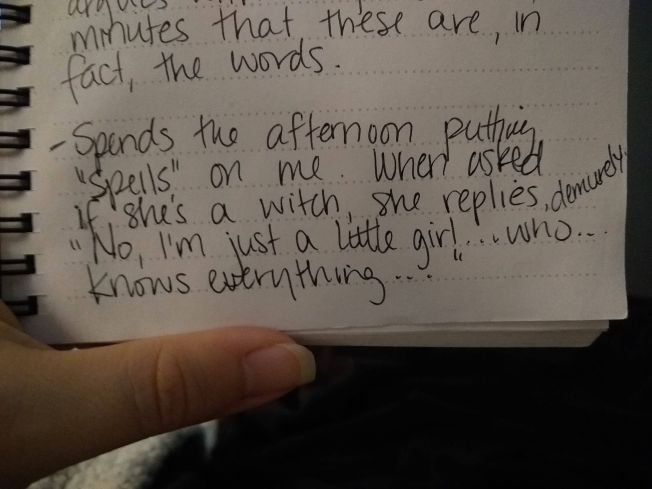 argues
minutes that these are, in
fact, the words.
- Spends the afternoon putting
"spells" on me. When asked
if she's a witch, she replies, demurely,
"No, I'm just a little girl... who...
knows everything...."